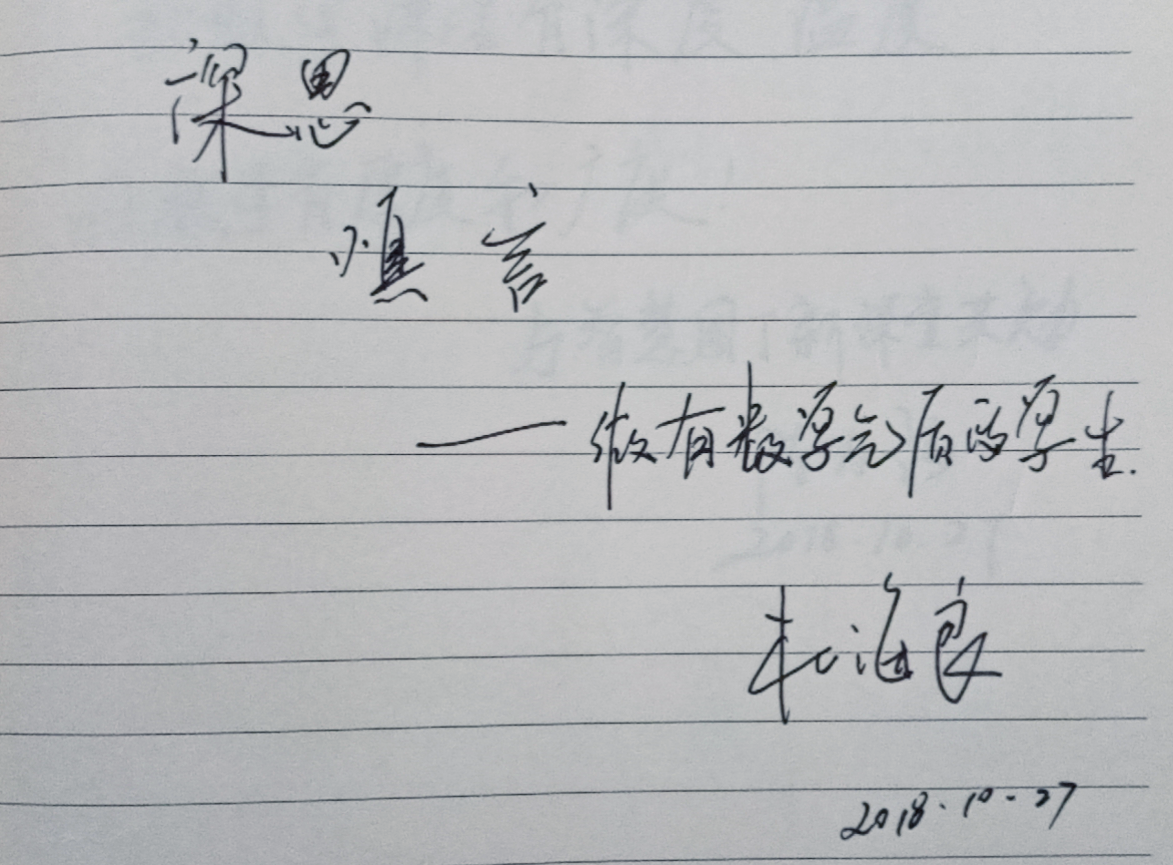 深思
慎言
——做有数学气质的学生.
海良
2018.10.27